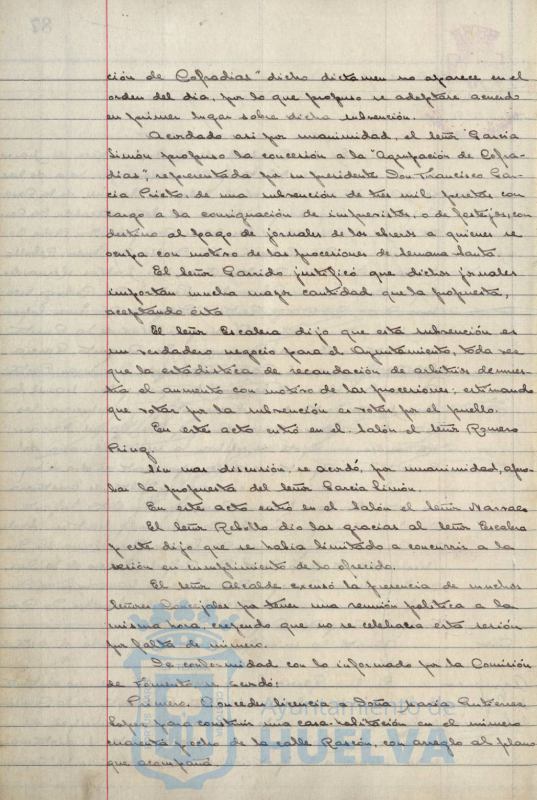 ción de Cofradias" dicho dictamen no aparece en el
orden del dia, por lo que propuso se adoptase acuerdo
en primer lugar sobre dicha subvención.
Acordado asi por unanimidad, el señor Garcia
Simón propuso la concesión a la "Agrupación de Cofra-
dias", representada por su presidente Don Francisco Gar-
cia Prieto, de una subvención de tres mil pesetas con
cargo a la consignación de imprevistos, o de festejos, con
destino al pago de jornales de los obreros a quienes se
ocupa con motivo de las procesiones de Semana Santa.
El señor Garrido justificó que dichos jornales
importan mucha mayor cantidad que la propuesta,
aceptando ésta
El señor Escalera dijo que esta subvención es
un verdadero negocio para el Ayuntamiento, toda vez
que la estadistica de recaudación de arbitrios demues-
tra el aumento con motivo de las procesiones; estimando
que votar por la subvención es votar por el pueblo.
En este acto entró en el salón el señor Romero
Sin mas discusión, se acordó, por unanimidad, apro-
bar la propuesta del señor Garcia Simón.
En este acto entró en el salón el señor
El señor Rebollo dio las gracias al señor Escalera
y este dijo que se habia limitado a concurrir a la
sesión en cumplimiento de lo ofrecido.
El señor Alcalde excusó la presencia de muchos
señores Concejales por tener una reunión politica a la
misma hora, creyendo que no se celebraria esta sesión
por falta de número.
De conformidad con lo informado por la Comisión
de Fomento, se acordó:
Primero. Conceder licencia a Doña Maria Gutierrez
Lopez para construir una casa-habitación en el número
cuarenta y ocho de la calle Rascón, con arreglo al plano
que acompaña
Ayuntamiento de
HUELVA